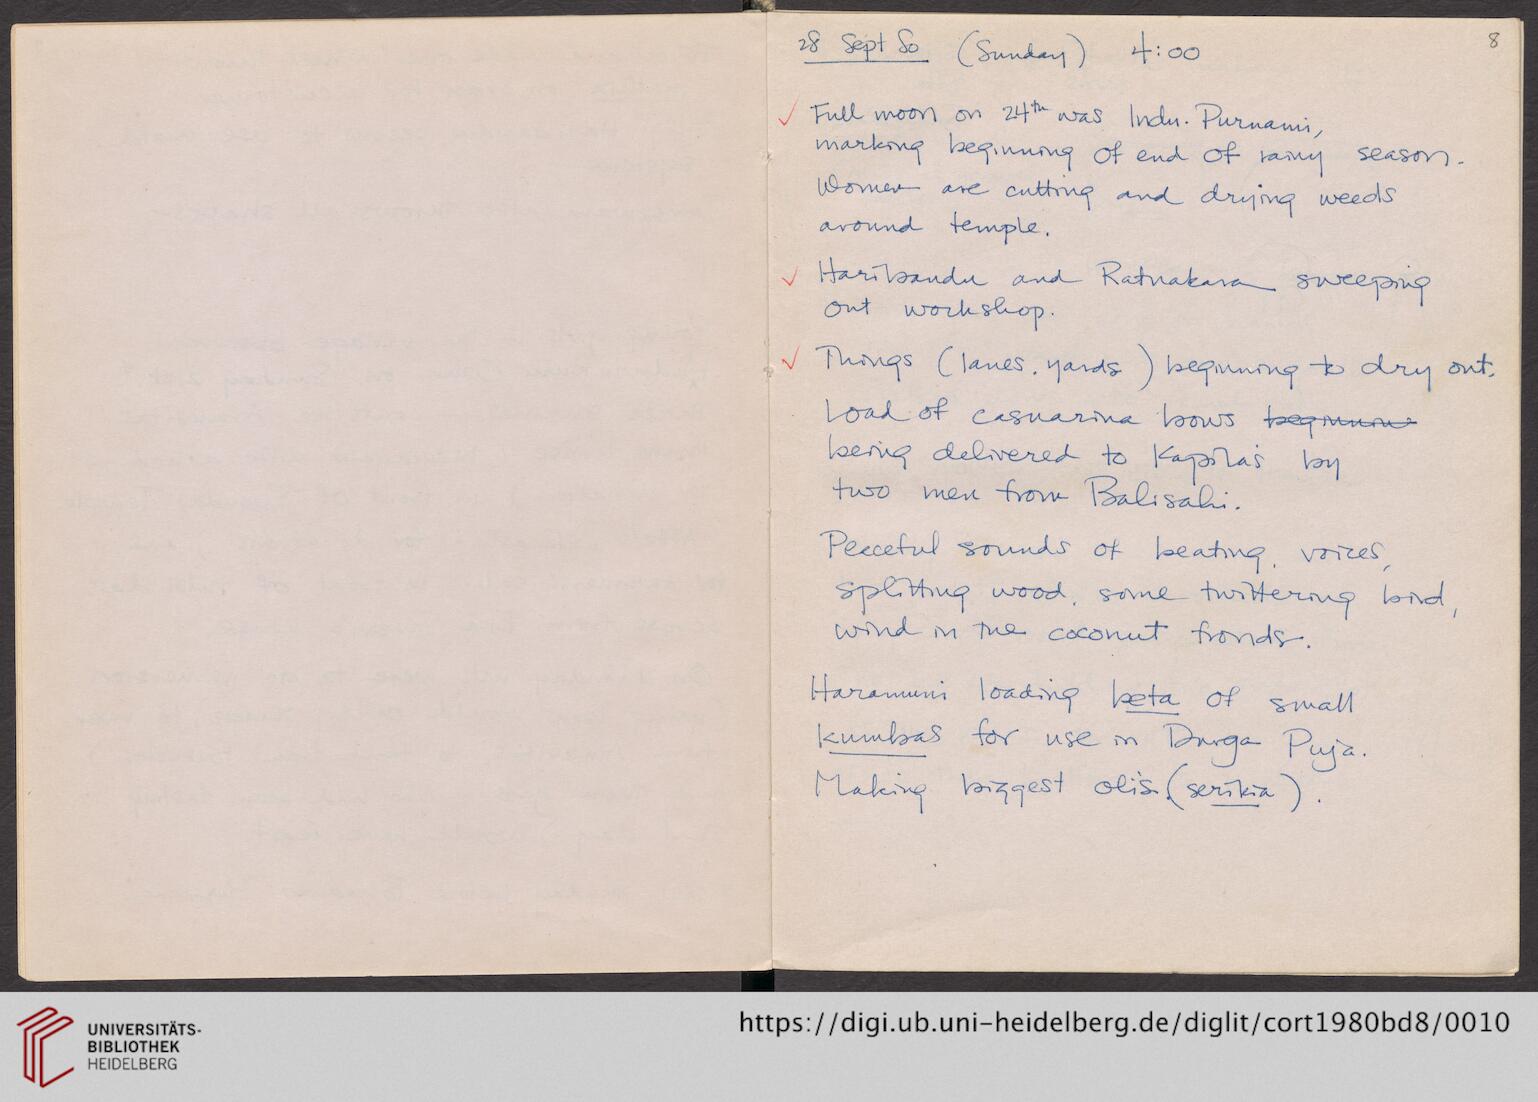 28 Sept 80 (Sunday) 4:00
8
✓ Full moon on 24th was Indu. Purnami,
marking beginning of end of rainy season.
Women are cutting and drying weeds
around temple.
✓ Haribandu and Ratnakara sweeping
out workshop.
✓ Things (lanes, yards) beginning to dry out.
Load of casuarina bows beginning
being delivered to Kapila's by
two men from Balisahi.
Peaceful sounds of beating, voices,
splitting wood, some twittering bird,
wind in the coconut fronds.
Haramuni loading beta of small
kumbas for use in Durga Puja.
Making biggest olis. (serikia).
UNIVERSITÄTS-
BIBLIOTHEK
HEIDELBERG
https://digi.ub.uni-heidelberg.de/diglit/cort1980bd8/0010